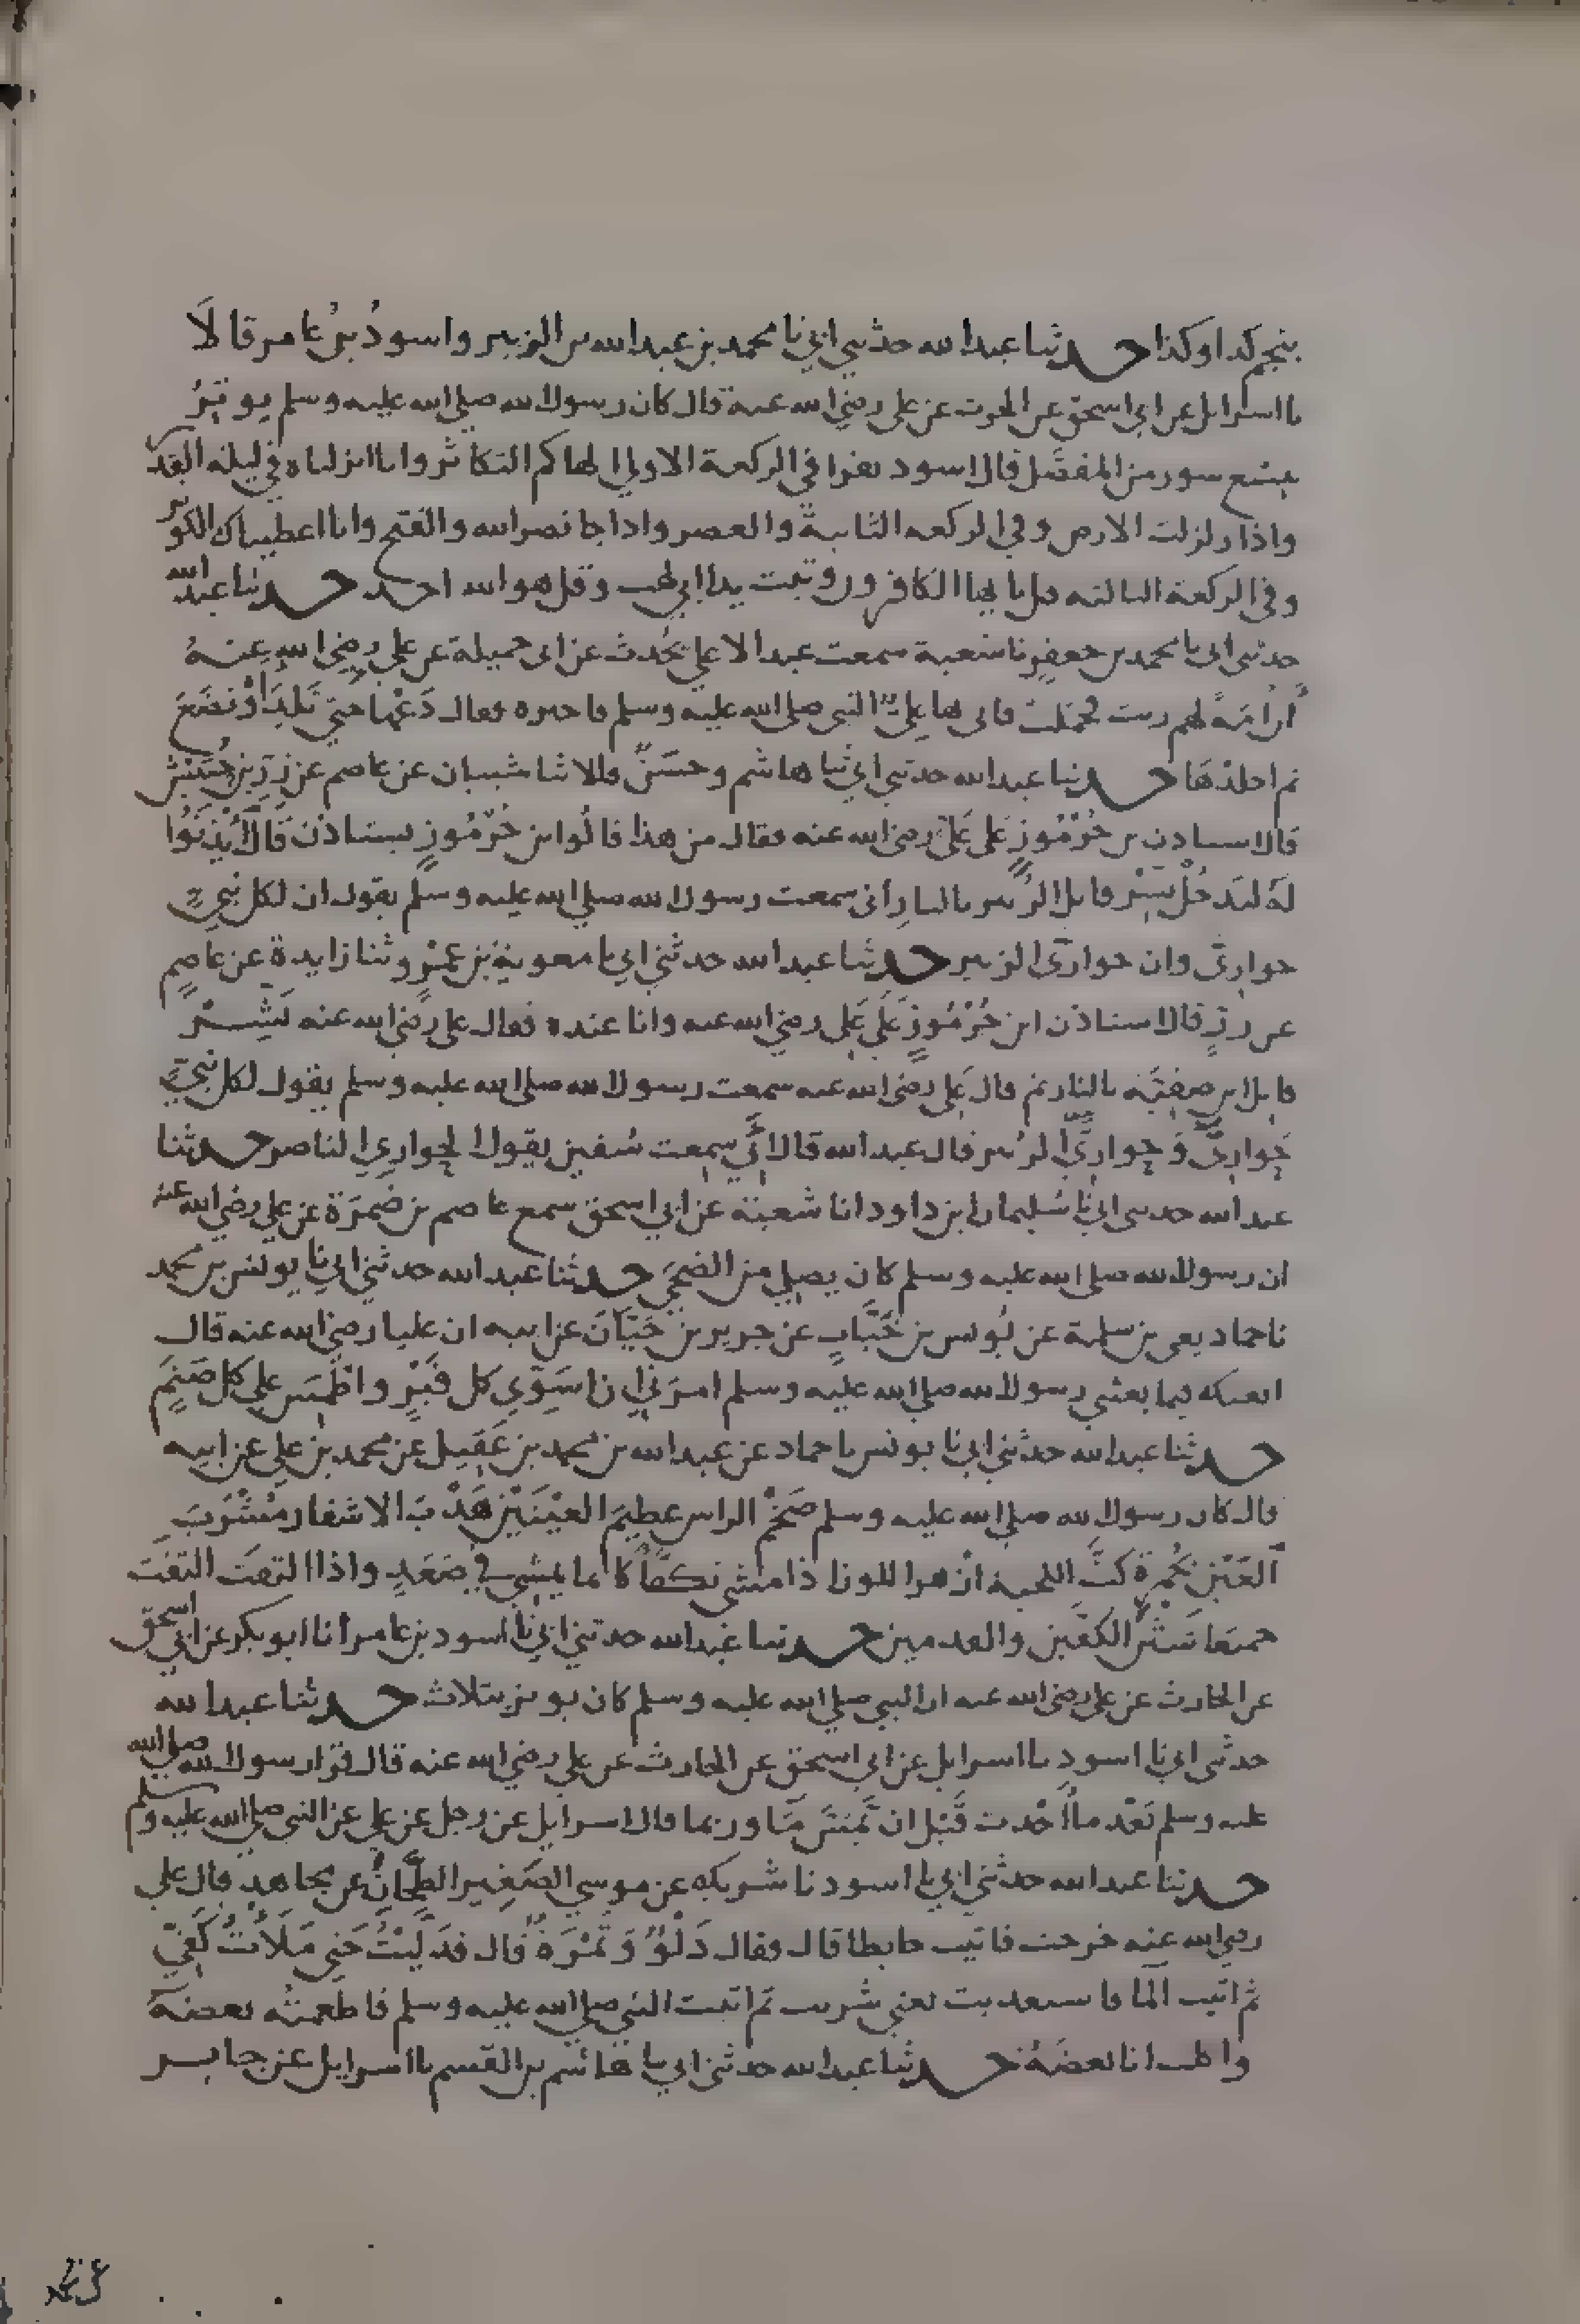 بنجم كذا وكذا حدثنا عبد الله حدثني ابي نا محمد بن عبد الله بن الزبير واسودُ بنُ عامر قالا
نا اسرايل عن ابي اسحق عن الحرث عن علي رضي الله عنه قال كان رسول الله صلى الله عليه وسلم يوتِرُ
بتسع سور من المفصَّل قال اسود يقرا في الركعة الاولى الهاكم التكاثر وانا انزلناه في ليلة القدر
واذا زلزلت الارض وفي الركعه الثانية والعصر واذا جا نصر الله والفتح وانا اعطيناك الكوثر
وفي الركعة الثالثه قل يا ايها الكافرون وتبت يدا ابي لهب وقل هو الله احد حدثنا عبد الله
حدثني ابي نا محمد بن جعفر نا شعبة سمعت عبد الاعلى يُحدث عن ابي جميلة عن علي رضي الله عنهُ
أن أَمَةً لهم زنت فحملت فاتى عليٌّ النبي صلى الله عليه وسلم فاخبره فقال دَعْها حتى تَلِدَ أوْ تضَعَ
ثم اجلدْهَا حدثنا عبد الله حدثني ابي ثنا هاشم وحسَنٌ قالا ثنا شيبان عن عاصم عن زِرِّ بن حُبَيْشٍ
قال استاذن بن جُرْمُوزٍ عَلى عَلِيّ رضي الله عنه فقال من هذا قالُوا بن جُرْمُوزٍ يستاذن قَال ائْذَنُوا
لَهُ ليَدخُلْ بَشِّر قاتل الزُّبير بالنارِ أني سمعت رسول الله صلى الله عليه وسلم يقول ان لكل نبيٍّ
حواريّ وان حواريّ الزبير حدثنا عبد الله حدثني ابي نا معويةُ بن عَمْرٍو ثنا زايدة عن عاصِمٍ
عن زرٍّ قال استاذن ابن جُرْمُوزٍ عَلَى عَلِي رضي الله عنه وانا عنده فقال علي رضي الله عنه بَشِّرْ
قاتل ابن صفيَّة بالنار ثم قال عَلي رضي الله عنه سمعت رسول الله صلى الله عليه وسلم يقول لكل نبيٍّ
حَواريٌّ وَحواريَّ الزُبير قال عبد الله قال ابي سمعت سُفين يقول الحواري الناصر حدثنا
عبد الله حدثني ابي نا سُليمان بن داود انا شعبة عن ابي اسحق سمع عاصم بن ضَمرَة عن علي رضي الله عنه
ان رسول الله صلى الله عليه وسلم كان يصلي من الضحَى حدثنا عبد الله حدثني ابي نا يونس بن محمد
نا حماد يعني بن سلمة عن يُونس بن خَبَّابٍ عن جرير بن حَيّانَ عن ابيه ان عليا رضي الله عنه قال
ابعثك فيما بعثني رسول الله صلى الله عليه وسلم امرَني ان اسَوِّي كل قَبْرٍ واطْمِسَ علي كل صَنَمٍ
حدثنا عبد الله حدثني ابي نا يونس نا حماد عن عبد الله بن محمد بن عَقيل عن محمد بن علي عن ابيه
قال كان رسول الله صلى الله عليه وسلم ضخْمَ الراس عظيمَ العيْنَيْن هَدْبَ الاشفار مُشْرَبَ
العَيْن بحُمرة كَثَّ اللحية ازهر اللون اذا مشى تكفَّأ كانما يمشي في صَعَدٍ واذا التفت التفَت
جميعًا شَثْنَ الكفَّين والقدمين حدثنا عبد الله حدثني ابي نا اسود بن عامر أنا ابو بكر عن ابي اسحق
عن الحارث عن علي رضي الله عنه ان النبي صلى الله عليه وسلم كان يوتر بثلاث حدثنا عبد الله
حدثني ابي نا اسود نا اسرايل عن ابي اسحق عن الحارث عن علي رضي الله عنه قال قرا رسول الله صلى الله
عليه وسلم بَعْد ما أحْدث قَبْل ان يَمَسَّ مَا وربما قال اسرايل عن رجل عن علي عن النبي صلى الله عليه وسلم
حدثنا عبد الله حدثني ابي نا اسود نا شريك عن موسى الصَغير الطَّحانِ عن مجاهد قال علي
رضي الله عنه خرجت فاتيت حايطا قال فقال دَلْوٌ وَتَمْرَةٌ قال فدَلَّيْتُ حَتى مَلَأْتُ كَفِيّ
ثم اتيت الما فاستعذبت يعني شربت ثم اتيت النبي صلى الله عليه وسلم فاطعمتُه بعضهُ
واكلت انا بعضَهُ حدثنا عبد الله حدثني ابي نا هاشم بن القسم نا اسرايل عن جابر